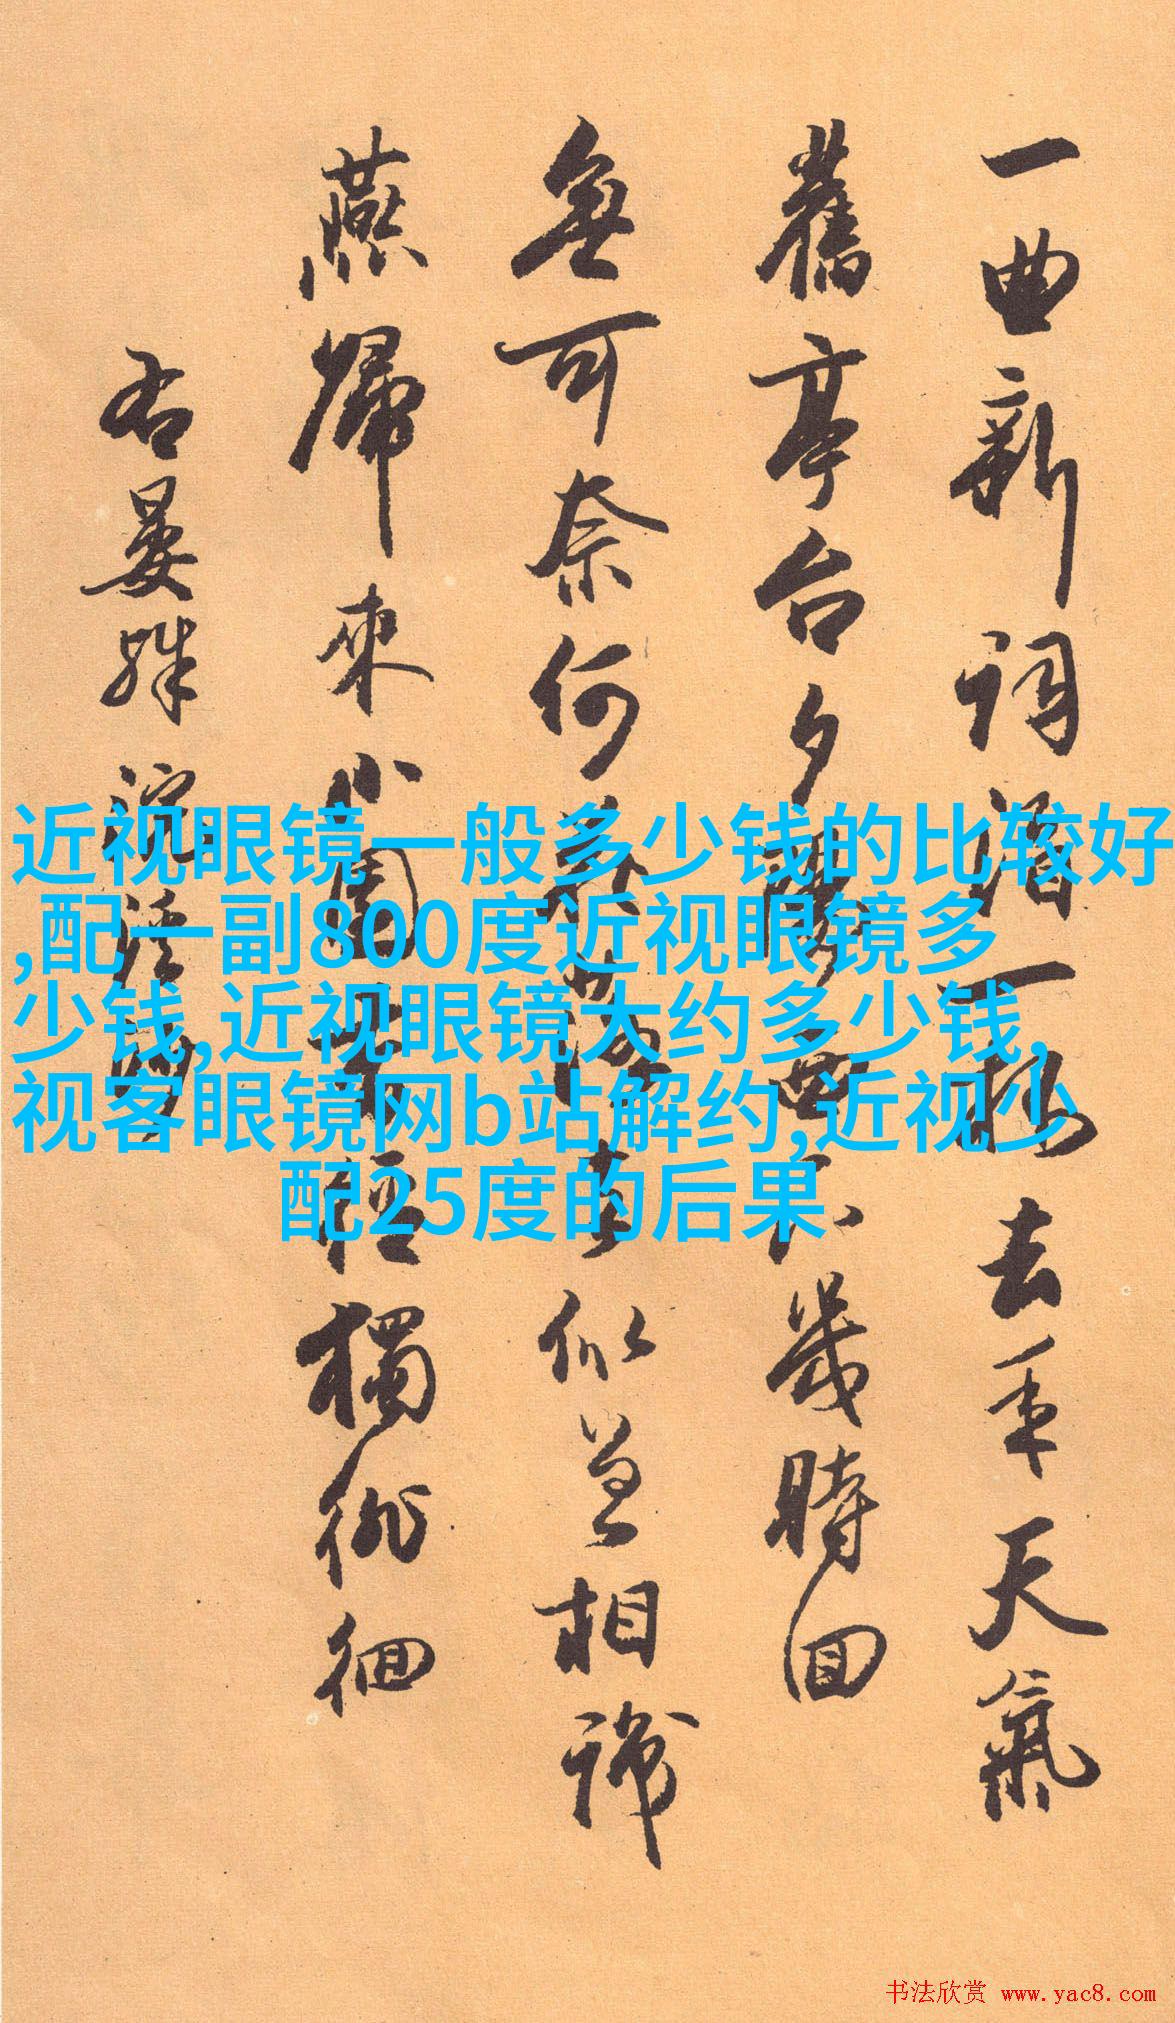 一曲新詞酒一杯去年天氣
舊亭台夕陽西下幾時回
無可奈何花落去似曾相識
燕歸來小園香徑獨徘徊
右晏殊浣溪沙
近视眼镜一般多少钱的比较好
,配一副800度近视眼镜多
少钱,近视眼镜大约多少钱,
视客眼镜网b站解约,近视少
配25度的后果
书法欣赏 www.yac8.com